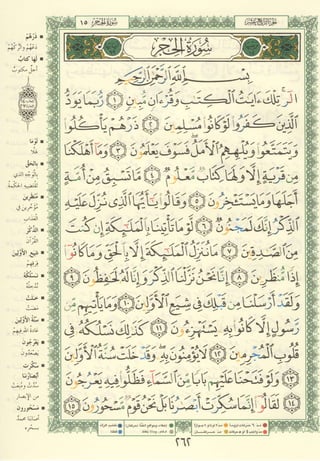 جزء الرابع عشر
سورة الحجر ١٥
سُورَةُ الحِجْرِ
بِسْمِ ٱللَّهِ ٱلرَّحْمَٰنِ ٱلرَّحِيمِ
الٓر تِلْكَ ءَايَٰتُ ٱلْكِتَٰبِ وَقُرْءَانٍ مُّبِينٍ ١ رُّبَمَا يَوَدُّ
ٱلَّذِينَ كَفَرُوا۟ لَوْ كَانُوا۟ مُسْلِمِينَ ٢ ذَرْهُمْ يَأْكُلُوا۟
وَيَتَمَتَّعُوا۟ وَيُلْهِهِمُ ٱلْأَمَلُ فَسَوْفَ يَعْلَمُونَ ٣ وَمَآ أَهْلَكْنَا
مِن قَرْيَةٍ إِلَّا وَلَهَا كِتَابٌ مَّعْلُومٌ ٤ مَّا تَسْبِقُ مِنْ أُمَّةٍ
أَجَلَهَا وَمَا يَسْتَـْٔخِرُونَ ٥ وَقَالُوا۟ يَٰٓأَيُّهَا ٱلَّذِى نُزِّلَ عَلَيْهِ
ٱلذِّكْرُ إِنَّكَ لَمَجْنُونٌ ٦ لَّوْ مَا تَأْتِينَا بِٱلْمَلَٰٓئِكَةِ إِن كُنتَ
مِنَ ٱلصَّٰدِقِينَ ٧ مَا نُنَزِّلُ ٱلْمَلَٰٓئِكَةَ إِلَّا بِٱلْحَقِّ وَمَا كَانُوٓا۟
إِذًا مُّنظَرِينَ ٨ إِنَّا نَحْنُ نَزَّلْنَا ٱلذِّكْرَ وَإِنَّا لَهُۥ لَحَٰفِظُونَ ٩
وَلَقَدْ أَرْسَلْنَا مِن قَبْلِكَ فِى شِيَعِ ٱلْأَوَّلِينَ ١٠ وَمَا يَأْتِيهِم مِّن
رَّسُولٍ إِلَّا كَانُوا۟ بِهِۦ يَسْتَهْزِءُونَ ١١ كَذَٰلِكَ نَسْلُكُهُۥ فِى
قُلُوبِ ٱلْمُجْرِمِينَ ١٢ لَا يُؤْمِنُونَ بِهِۦ وَقَدْ خَلَتْ سُنَّةُ ٱلْأَوَّلِينَ
١٣ وَلَوْ فَتَحْنَا عَلَيْهِم بَابًا مِّنَ ٱلسَّمَآءِ فَظَلُّوا۟ فِيهِ يَعْرُجُونَ
١٤ لَقَالُوٓا۟ إِنَّمَا سُكِّرَتْ أَبْصَٰرُنَا بَلْ نَحْنُ قَوْمٌ مَّسْحُورُونَ ١٥
ذَرْهُمْ
لَهَا كِتَابٌ
لَوْمَا
بِالحَقِّ
مُنظَرِينَ
الذِّكْرَ
شِيَعِ الأَوَّلِينَ
نَسْلُكُهُ
خَلَتْ
سُنَّةُ الأَوَّلِينَ
يَعْرُجُونَ
سُكِّرَتْ
أَبْصَارُنَا
مَسْحُورُونَ
٢٦٢